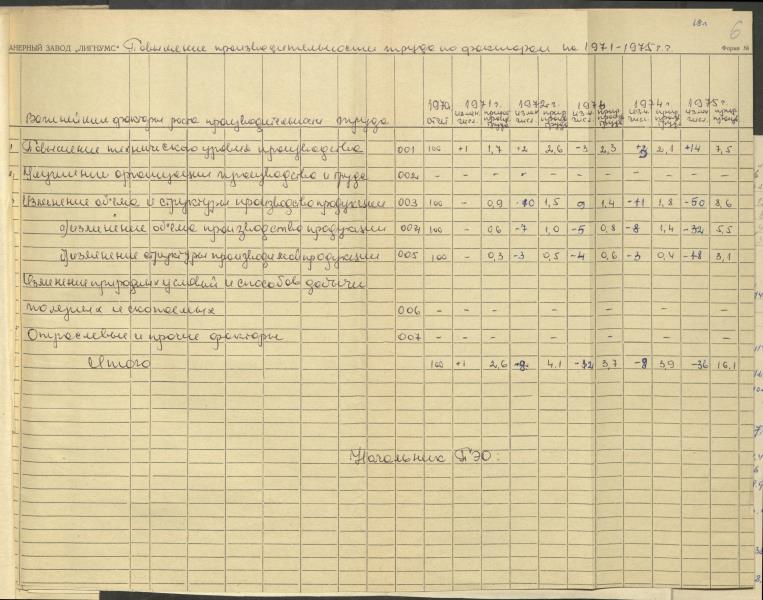 18л 6
АНЕРНЫЙ ЗАВОД „ЛИГНУМС“ Повышение производительности труда по факторам на 1971-1975 г.г. Форма №
Важнейшие факторы роста производительности труда 1970 отчёт 1971 г. измен. числ. 1972 г. измен. числ. 1973 1974 г. 1975 г.
Повышение технического уровня производства 001 100 +1 1,7 +2 2,6 -3 2,3 2,1 +14 7,5
Улучшение организации производства и труда 002 - - - - - - - - - -
Изменение объема и структуры производства продукции 003 100 - 0,9 -10 1,5 9 1,4 -11 1,8 -50 8,6
Изменение объема производства продукции 004 100 - 0,6 -7 1,0 -5 0,8 -8 1,4 -32 5,5
Изменение структуры производимой продукции 005 100 - 0,3 -3 0,5 -4 0,6 -3 0,4 -18 3,1
Изменение природных условий и способов добычи
полезных ископаемых 006 - - - - - - -
Отраслевые и прочие факторы 007 - - - - - - -
Итого 100 +1 2,6 4,1 -12 3,7 -8 3,9 -36 16,1
Начальник ПЭО: